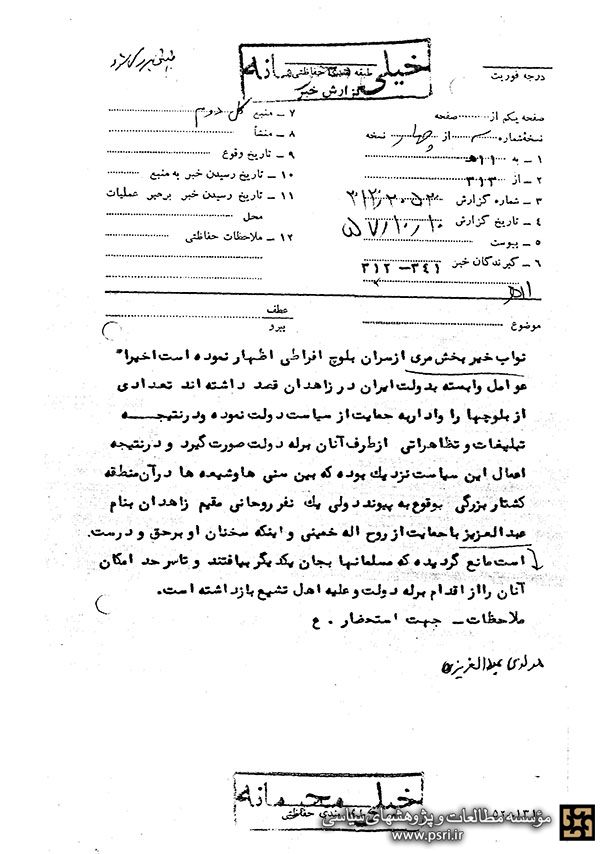 خیلی محرمانه
طبقه بندی حفاظتی
گزارش خبر
درجه فوریت
صفحه یکم از صفحه
نسخه شماره از چهار نسخه
۱ – به ۱۱هـ
۲ – از ۳۱۳
۳ – شماره گزارش
۴ – تاریخ گزارش ۵۷/۱۰/۱۰
۵ – پیوست
۶ – گیرندگان خبر ۳۴۱–۳۱۲
۷ – منبع کل دوم
۸ – منشأ
۹ – تاریخ وقوع
۱۰ – تاریخ رسیدن خبر به منبع
۱۱ – تاریخ رسیدن خبر برهبر عملیات
محل
۱۲ – ملاحظات حفاظتی
موضوع
عطف
پیرو
نواب خیر بخش مری ازسران بلوچ افراطی اظهار نموده است اخیرا"
عوامل وابسته بدولت ایران در زاهدان قصد داشته اند تعدادی
از بلوچها را وادار به حمایت از سیاست دولت نموده ودرنتیجـــه
تبلیغات و تظاهراتی ازطرف آنان برله دولت صورت گیرد و درنتیجه
اعمال این سیاست نزدیك بوده که بین سنی ها وشیعه ها درآن منطقه
کشتار بزرگی بوقوع به پیوندد ولی یك نفر روحانی مقیم زاهدان بنام
عبدالعزیز با حمایت از روح اله خمینی و اینکه سخنان او برحق و درست
است مانع گردیده که مسلمانها بجان یکدیگر بیافتند و تاسرحد امکان
آنان رااز اقدام برله دولت و علیه اهل تشیع بازداشته است.
ملاحظات – جهت استحضار . ع
مولوی عبدالعزیز
خیلی محرمانه
طبقه بندی حفاظتی
موسسه مطالعات و پژوهشهای سیاسی
www.psri.ir